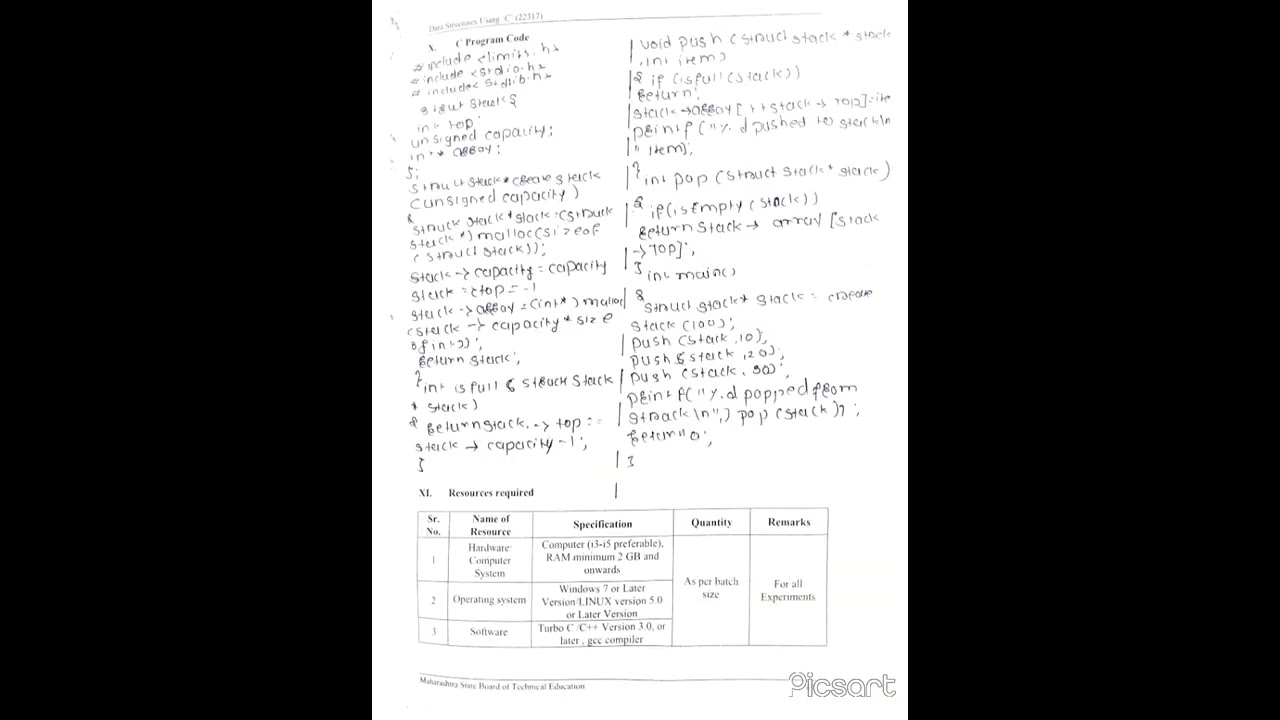 Data Structures Using 'C' (22317)
X. C Program Code
# include <limits.h>
# include <stdio.h>
# include < stdlib.h>
struct stack {
int top;
unsigned capacity;
int * array;
};
struct stack * create stack
(unsigned capacity)
{
struct stack * stack = (struct
stack *) malloc(sizeof
(struct stack));
stack -> capacity = capacity
stack => top = -1
stack -> array = (int*) malloc
(stack -> capacity * size
of int));
return stack;
}
int isfull ( struct stack
* stack)
{ return stack. -> top ==
stack -> capacity -1;
}
void push ( struct stack * stack
, int item)
{ if (isfull (stack))
return;
stack -> array [ ++stack -> top] = ite
printf ("%.d pushed to stack\n
" item);
}
int pop (struct stack * stack)
{ if (isEmpty (stack))
return stack -> array [stack
-> top];
}
int main()
{
struct stack * stack = create
stack (100);
push (stack ,10);
push ( stack ,20);
push (stack , 30);
printf("%.d popped from
stack \n",) pop (stack));
return 0;
}
XI. Resources required
Sr. No. Name of Resource Specification Quantity Remarks
1 Hardware Computer System Computer (i3-i5 preferable), RAM minimum 2 GB and onwards As per batch size For all Experiments
2 Operating system Windows 7 or Later Version/LINUX version 5.0 or Later Version
3 Software Turbo C /C++ Version 3.0, or later , gcc compiler
Maharashtra State Board of Technical Education
Picsart